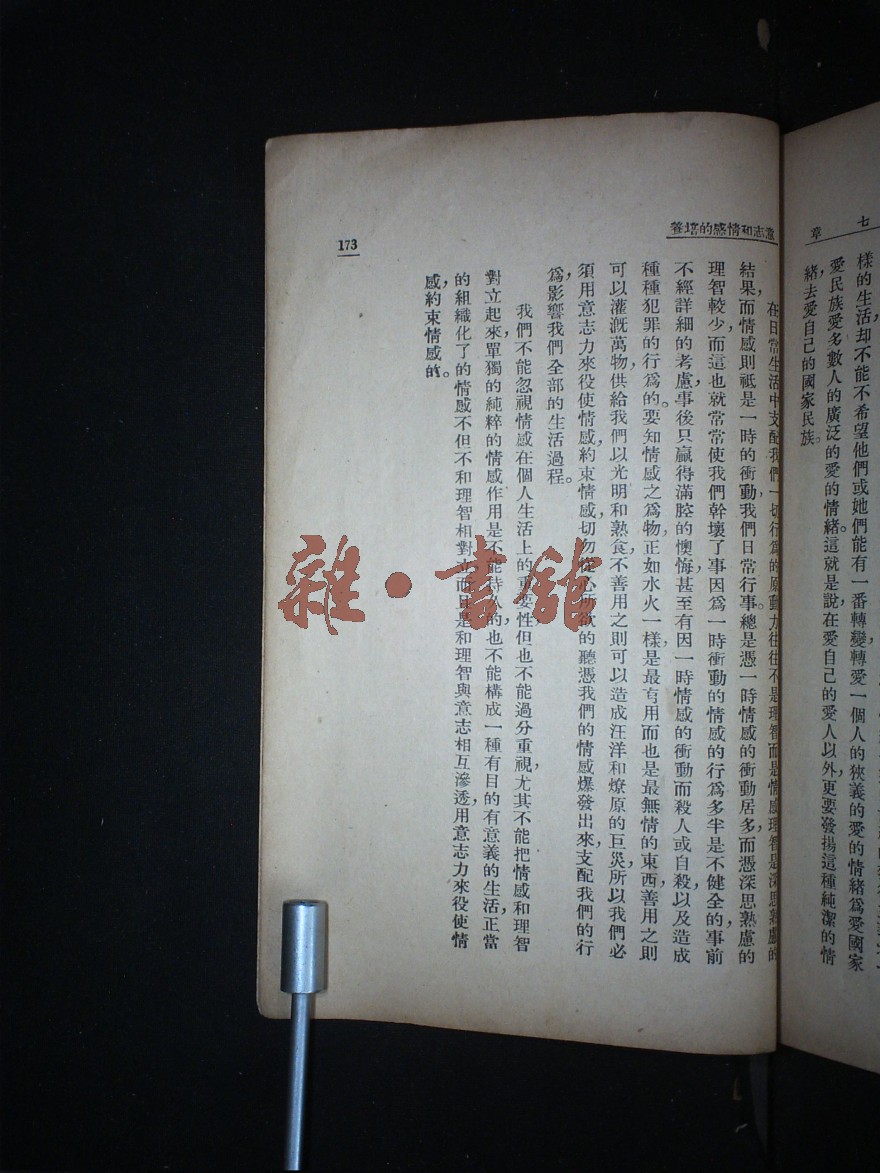 七
章
樣的生活,却不能不希望他們或她們能有一番轉變,轉愛一個人的狹義的愛的情緒爲愛國家
愛民族愛多數人的廣泛的愛的情緒。這就是說,在愛自己的愛人以外,更要發揚這種純潔的情
緒,去愛自己的國家民族。
意志和情感的培養
在日常生活中支配我們一切行爲的原動力,往往不是理智而是情感,理智是深思熟慮的
結果,而情感則祇是一時的衝動,我們日常行事。總是憑一時情感的衝動居多,而憑深思熟慮的
理智較少,而這也就常常使我們幹壞了事,因爲一時衝動的情感的行爲多半是不健全的,事前
不經詳細的考慮,事後只贏得滿腔的懊悔,甚至有因一時情感的衝動而殺人或自殺,以及造成
種種犯罪的行爲的。要知情感之爲物,正如水火一樣,是最有用而也是最無情的東西,善用之則
可以灌漑萬物,供給我們以光明和熟食,不善用之則可以造成汪洋和燎原的巨災,所以我們必
須用意志力來役使情感,約束情感,切勿從心所欲的聽憑我們的情感爆發出來,支配我們的行
爲,影響我們全部的生活過程。
我們不能忽視情感在個人生活上的重要性,但也不能過分重視,尤其不能把情感和理智
對立起來,單獨的純粹的情感作用是不能持久的,也不能構成一種有目的有意義的生活,正當
的組織化了的情感不但不和理智相對立,而且是和理智與意志相互滲透,用意志力來役使情
感,約束情感的。
173
雜·書舘